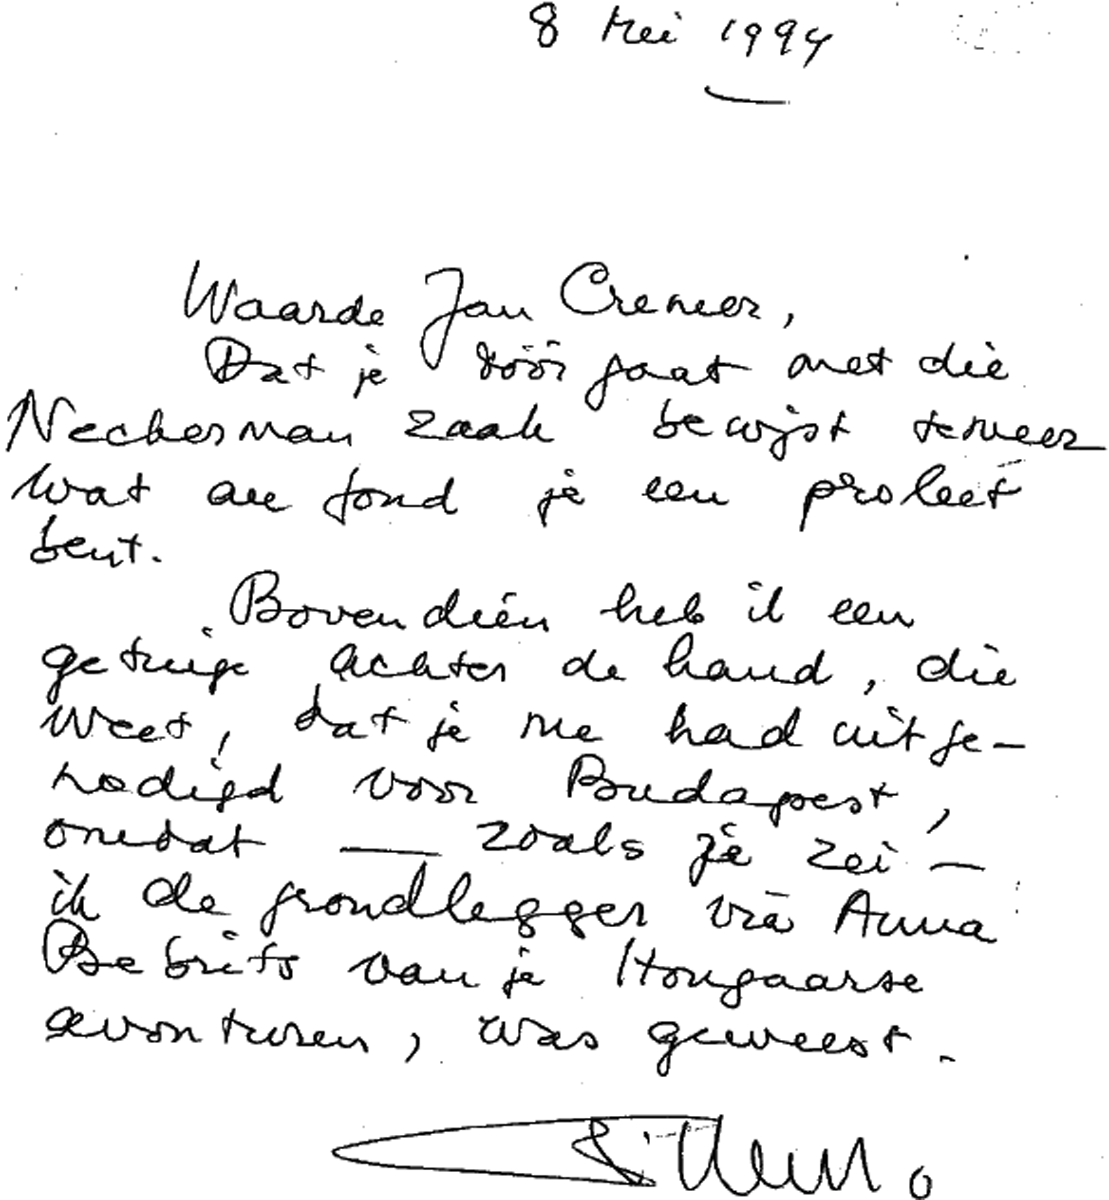 8 Mei 1994
Waarde Jan Cremer,
Dat je dóór gaat met die
Neckerman zaak bewijst temeer
wat au fond je een proleet
bent.
Bovendien heb ik een
getuige achter de hand, die
weet, dat je me had uitge-
nodigd voor Budapest,
omdat — zoals je zei —
ik de grondlegger via Anna
Bebrits van je Hongaarse
avonturen, was geweest.